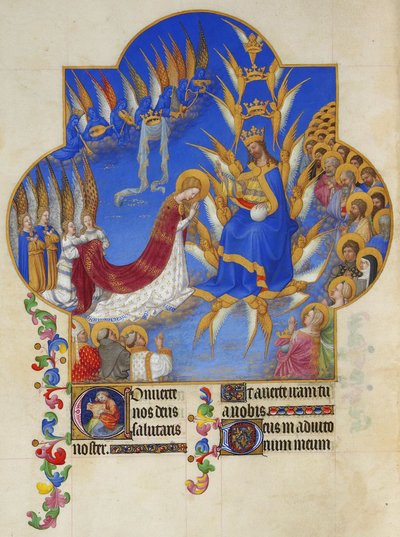 Conuerte
nos deus
salutaris
noster.
Et auerte iram tu
a nobis.
Deus in adiuto
rium meum